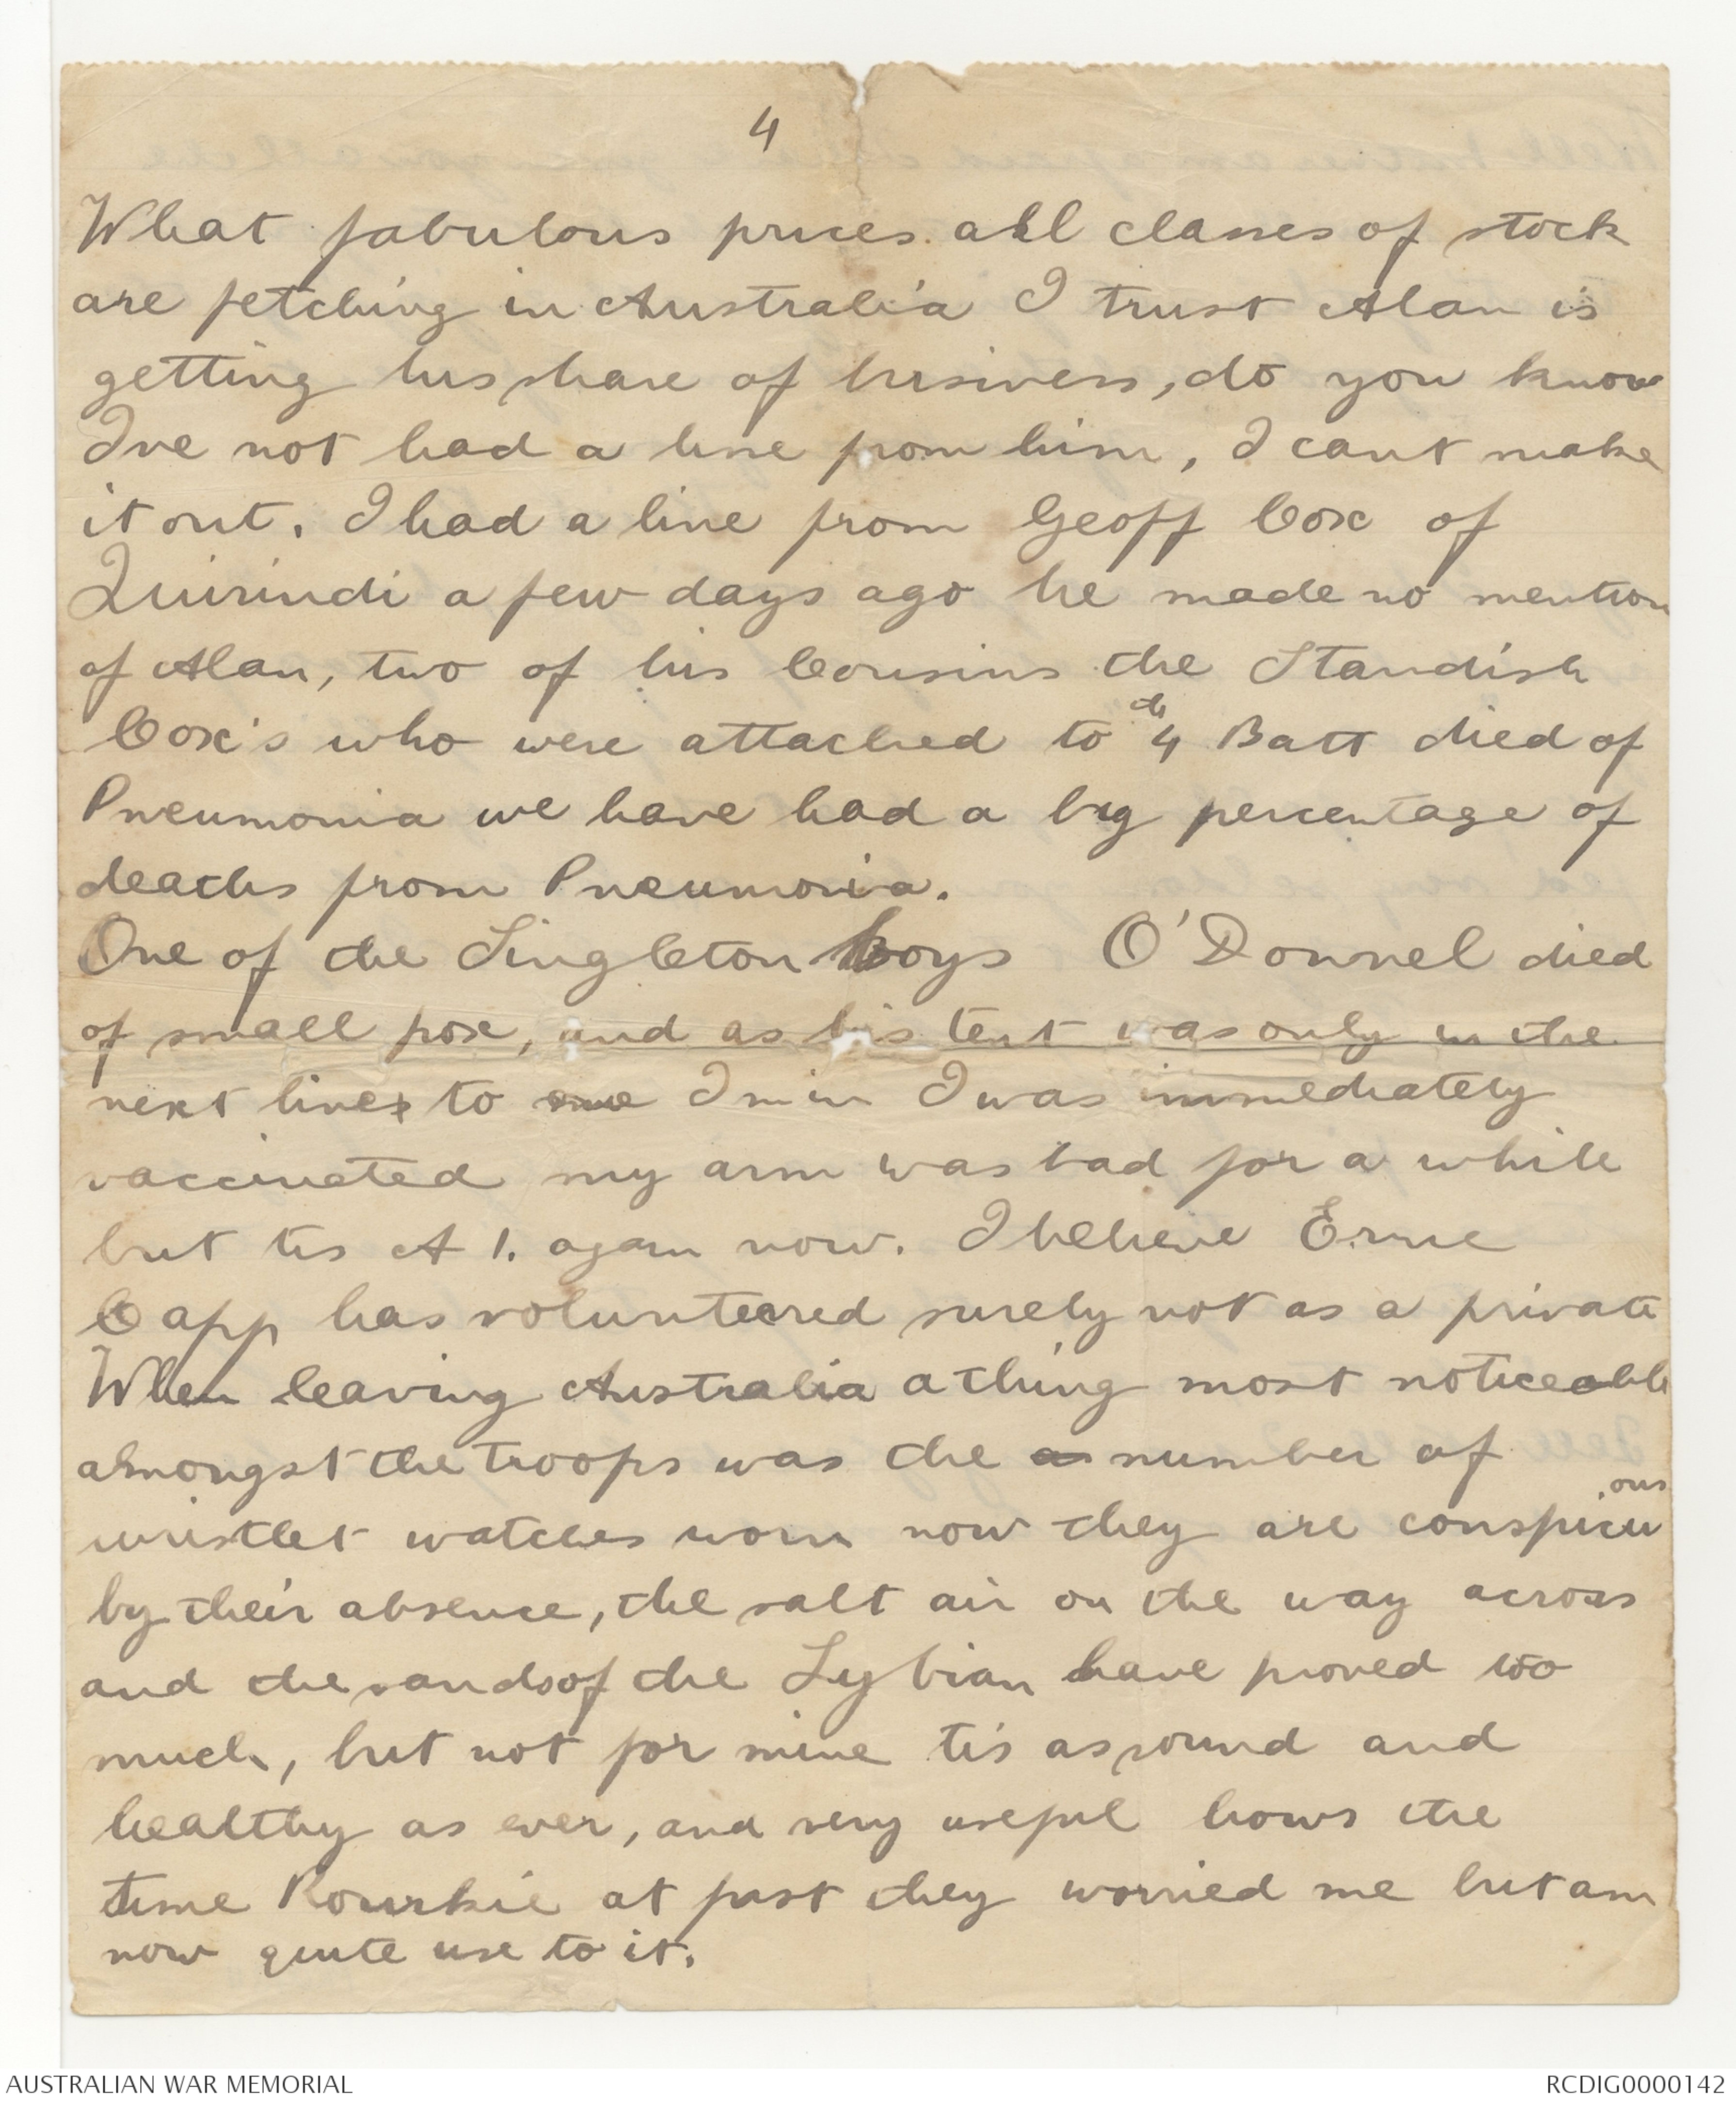 4
What fabulous prices all classes of stock
are fetching in Australia I trust Alan is
getting his share of business, do you know
Ive not had a line from him, I cant make
it out. I had a line from Geoff Cox of
Quirindi a few days ago he made no mention
of Alan, two of his Cousins the Standish
Cox's who were attached to 4th Batt died of
Pneumonia we have had a big percentage of
deaths from Pneumonia.
One of the Singleton boys O'Donnel died
of small pox, and as his tent was only in the
next lines to one I'm in I was immediately
vaccinated my arm was bad for a while
but tis A 1. again now. I believe Erne
Capp has volunteered surely not as a private
When leaving Australia a thing most noticeable
amongst the troops was the number of
wristlet watches worn now they are conspicuous
by their absence, the salt air on the way across
and the sands of the Lybian have proved too
much, but not for mine tis as sound and
healthy as ever, and very useful hows the
time Rourkie at fust they worried me but am
now quite use to it.
AUSTRALIAN WAR MEMORIAL
RCDIG0000142